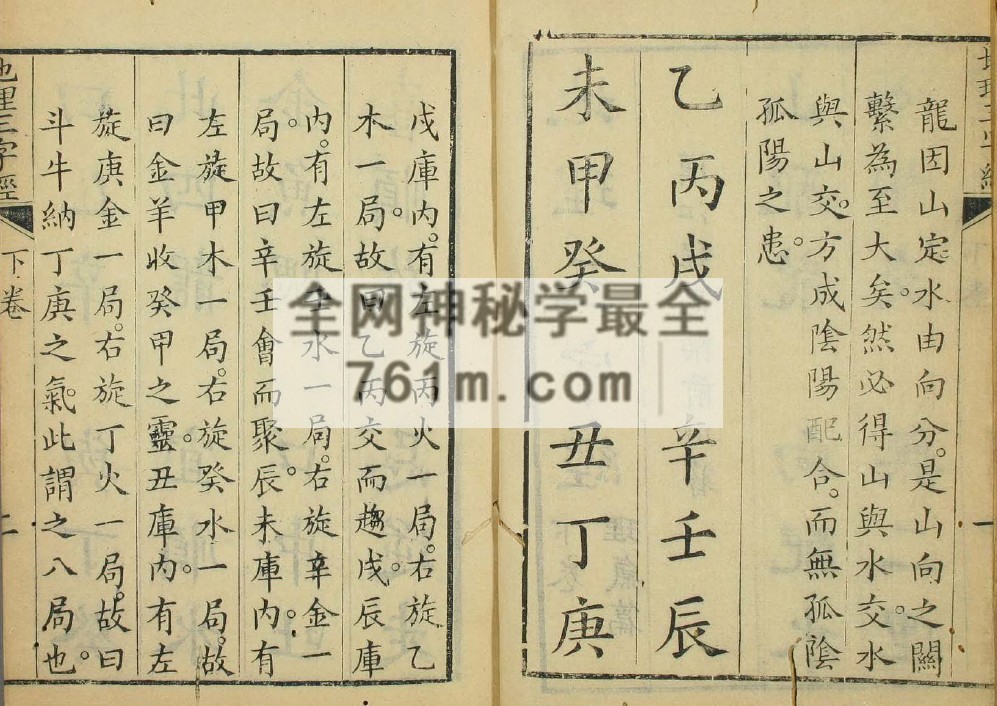 龍因山定。水由向分。是山向之關
繫為至大矣。然必得山與水交。水
與山交。方成陰陽配合。而無孤陰
孤陽之患。
乙丙戌辛壬辰
未甲癸丑丁庚
戌庫內。有左旋丙火一局。右旋乙
木一局。故曰乙丙交而趨戌。辰庫
內。有左旋壬水一局。右旋辛金一
局。故曰辛壬會而聚辰。未庫內。有
左旋甲木一局。右旋癸水一局。故
曰金羊收癸甲之靈。丑庫內。有左
旋庚金一局。右旋丁火一局。故曰
斗牛納丁庚之氣。此謂之八局也。
地理三字經 下卷
全网神秘学最全
761m.com